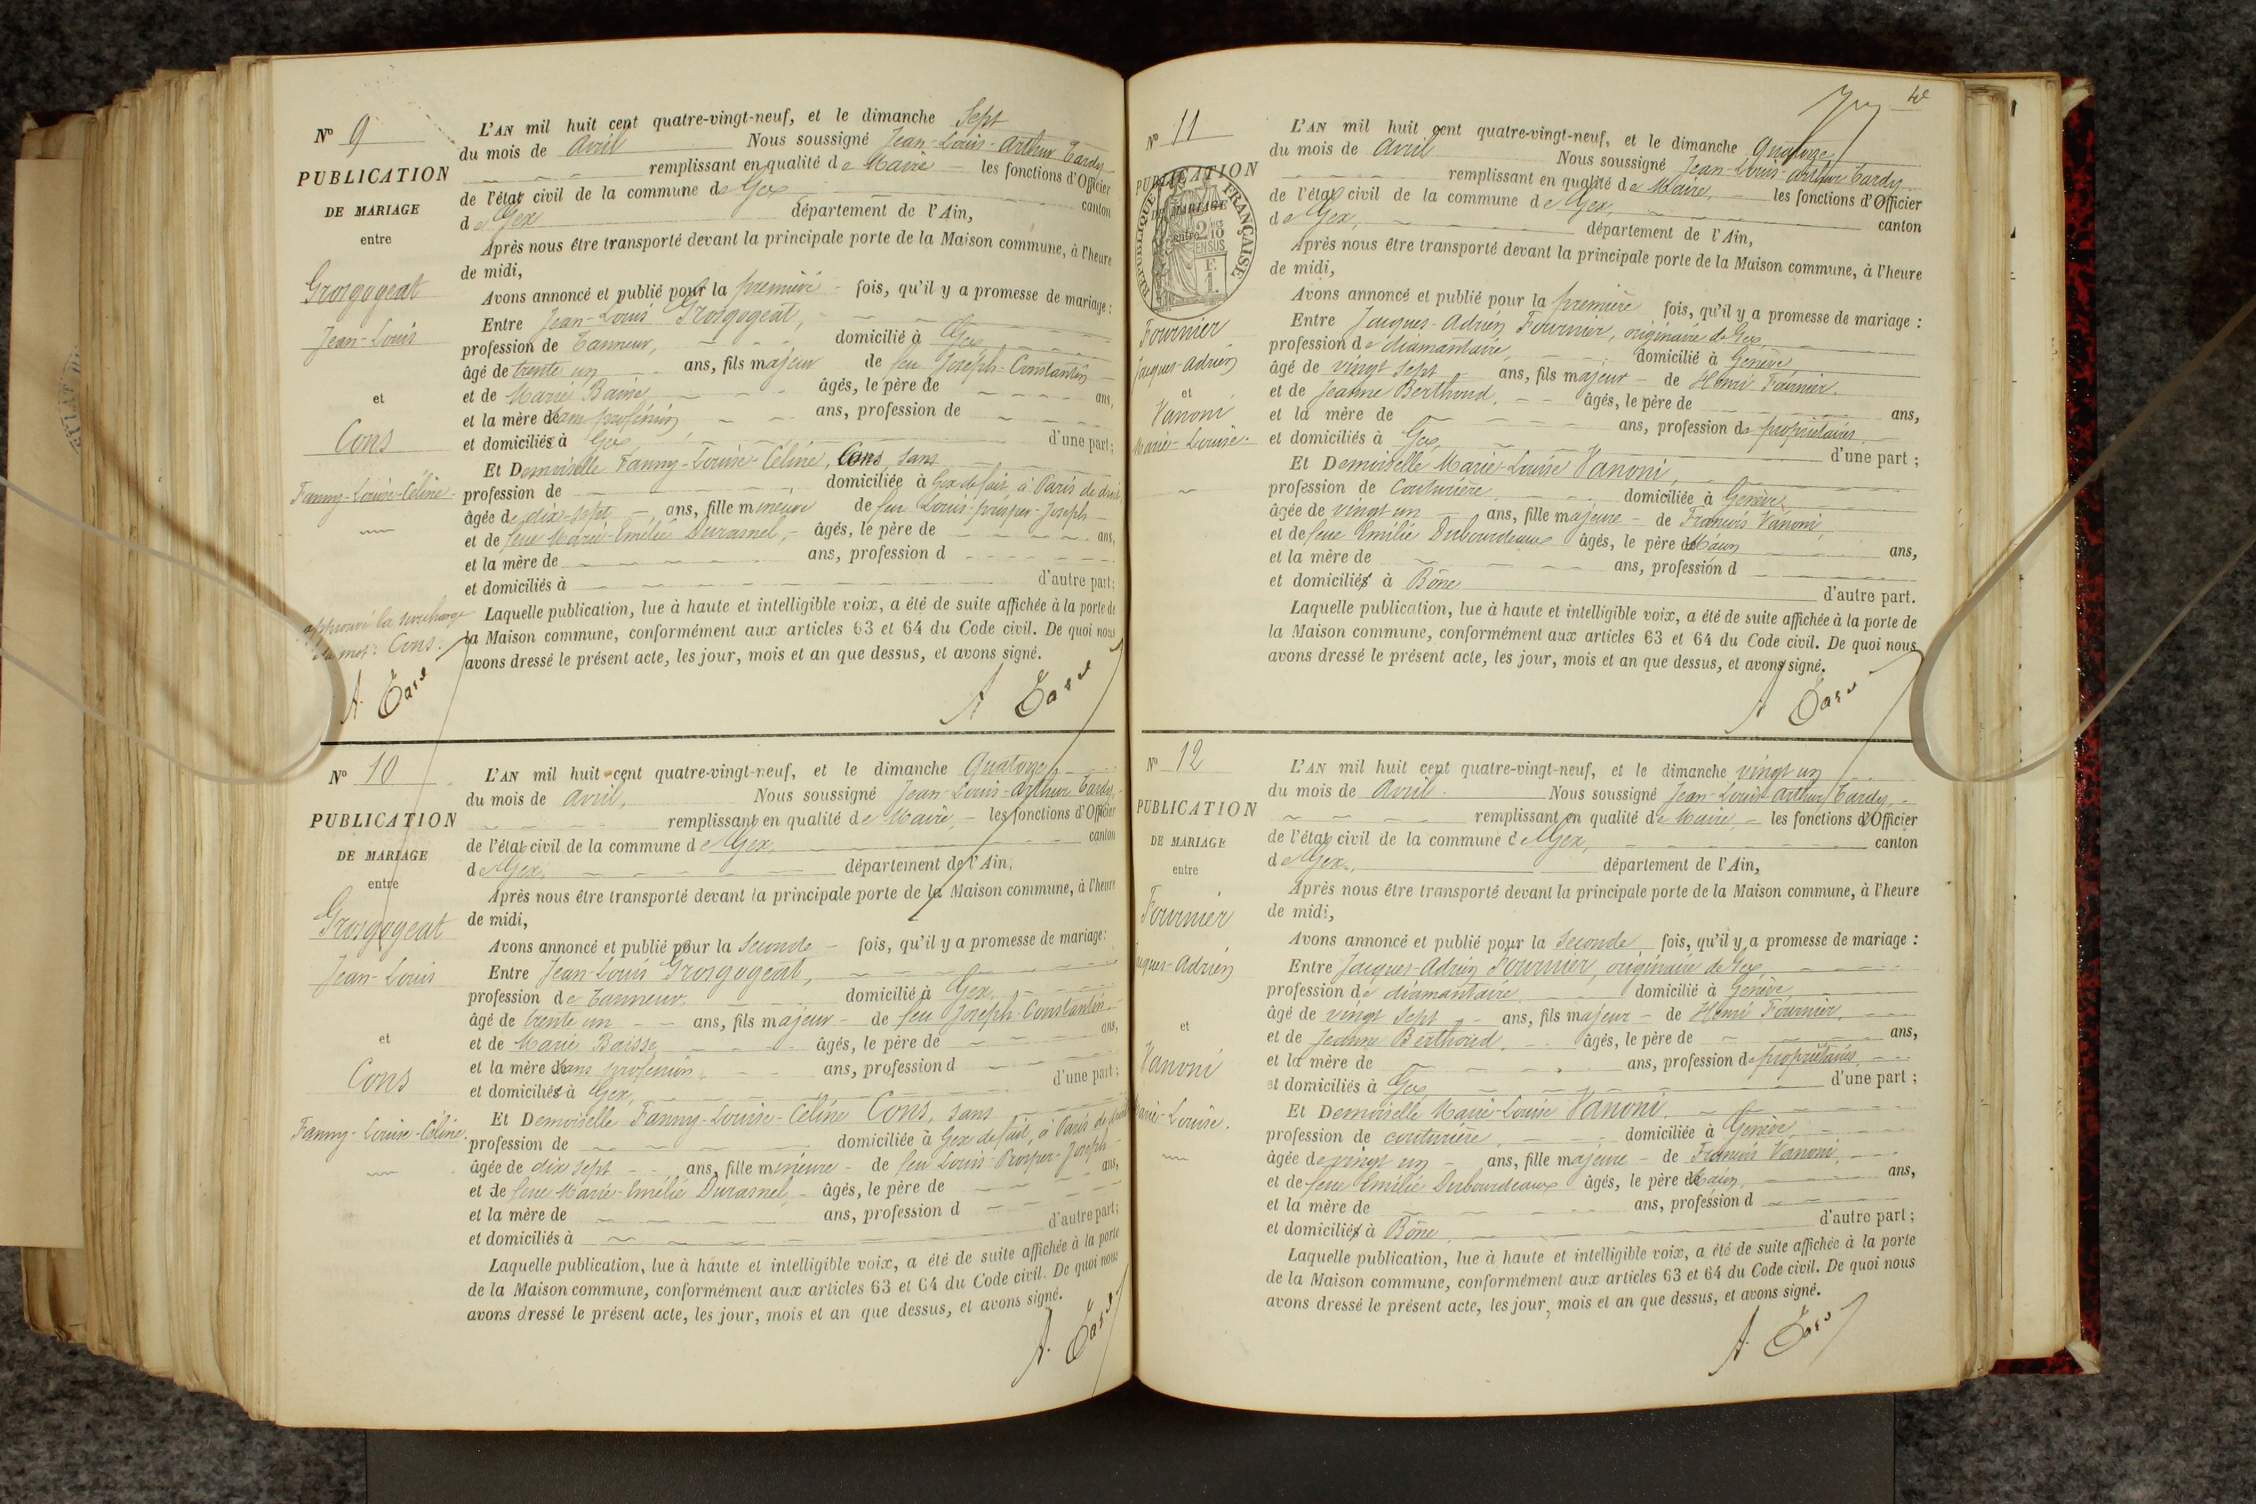 N° 9
PUBLICATION
DE MARIAGE
entre
Grosgogeat
Jean-Louis
et
Cons
Fanny-Louise-Céline.
approuvé la surcharge
du mot: Cons.
A Tardy
L'AN mil huit cent quatre-vingt-neuf, et le dimanche Sept
du mois de Avril Nous soussigné Jean-Louis-Arthur Tardy
remplissant en qualité de Maire les fonctions d'Officier
de l'état civil de la commune de Gex canton
de Gex département de l'Ain,
Après nous être transporté devant la principale porte de la Maison commune, à l'heure
de midi,
Avons annoncé et publié pour la première fois, qu'il y a promesse de mariage :
Entre Jean-Louis Grosgogeat,
profession de Tanneur, domicilié à Gex
âgé de trente un ans, fils majeur de feu Joseph-Constantin
et de Marie Baisse âgés, le père de ans,
et la mère de sans profession ans, profession de
et domiciliés à Gex, d'une part;
Et Demoiselle Fanny-Louise-Céline, Cons, sans
profession de domiciliée à Gex de fait, à Paris de droit,
âgée de dix-sept ans, fille mineure de feu Louis-prosper-Joseph
et de feue Marie-Emélie Durasnel, âgés, le père de ans,
et la mère de ans, profession d
et domiciliés à d'autre part;
Laquelle publication, lue à haute et intelligible voix, a été de suite affichée à la porte de
la Maison commune, conformément aux articles 63 et 64 du Code civil. De quoi nous
avons dressé le présent acte, les jour, mois et an que dessus, et avons signé.
A Tardy
N° 10
PUBLICATION
DE MARIAGE
entre
Grosgogeat
Jean-Louis
et
Cons
Fanny-Louise-Céline.
L'AN mil huit cent quatre-vingt-neuf, et le dimanche Quatorze
du mois de Avril, Nous soussigné Jean-Louis-Arthur Tardy,
remplissant en qualité de Maire, les fonctions d'Officier
de l'état civil de la commune de Gex, canton
de Gex, département de l'Ain,
Après nous être transporté devant la principale porte de la Maison commune, à l'heure
de midi,
Avons annoncé et publié pour la Seconde fois, qu'il y a promesse de mariage :
Entre Jean-Louis Grosgogeat,
profession de Tanneur, domicilié à Gex,
âgé de trente un ans, fils majeur de feu Joseph-Constantin
et de Marie Baisse, âgés, le père de ans,
et la mère de sans profession, ans, profession d
et domiciliés à Gex, d'une part;
Et Demoiselle Fanny-Louise-Céline Cons, sans
profession de domiciliée à Gex de fait, à Paris de droit
âgée de dix sept ans, fille mineure de feu Louis-Prosper-Joseph
et de feue Marie-Emélie Durasnel, âgés, le père de ans,
et la mère de ans, profession d
et domiciliés à d'autre part;
Laquelle publication, lue à haute et intelligible voix, a été de suite affichée à la porte
de la Maison commune, conformément aux articles 63 et 64 du Code civil. De quoi nous
avons dressé le présent acte, les jour, mois et an que dessus, et avons signé.
A. Tardy
N° 11
PUBLICATION
DE MARIAGE
entre
RÉPUBLIQUE FRANÇAISE
2/10 EN SUS
F. 1.
Fournier
Jacques-Adrien
et
Vanoni
Marie-Louise.
L'AN mil huit cent quatre-vingt-neuf, et le dimanche Quatorze
du mois de Avril Nous soussigné Jean-Louis-Arthur Tardy
remplissant en qualité de Maire, les fonctions d'Officier
de l'état civil de la commune de Gex, canton
de Gex, département de l'Ain,
Après nous être transporté devant la principale porte de la Maison commune, à l'heure
de midi,
Avons annoncé et publié pour la première fois, qu'il y a promesse de mariage :
Entre Jacques-Adrien Fournier, originaire de Gex,
profession de diamantaire, domicilié à Genève
âgé de vingt sept ans, fils majeur de Henri Fournier.
et de Jeanne Berthoud, âgés, le père de ans,
et la mère de ans, profession de propriétaires.
et domiciliés à Gex d'une part ;
Et Demoiselle Marie-Louise Vanoni,
profession de Couturière domiciliée à Genève,
âgée de vingt un ans, fille majeure de Francis Vanoni,
et de feue Emélie Dubourdeaux âgés, le père de Maçon ans,
et la mère de ans, profession d
et domiciliés à Bône d'autre part.
Laquelle publication, lue à haute et intelligible voix, a été de suite affichée à la porte de
la Maison commune, conformément aux articles 63 et 64 du Code civil. De quoi nous
avons dressé le présent acte, les jour, mois et an que dessus, et avons signé.
A Tardy
N° 12
PUBLICATION
DE MARIAGE
entre
Fournier
Jacques-Adrien
et
Vanoni
Marie-Louise.
L'AN mil huit cent quatre-vingt-neuf, et le dimanche vingt un
du mois de Avril. Nous soussigné Jean-Louis Arthur Tardy,
remplissant en qualité de Maire, les fonctions d'Officier
de l'état civil de la commune de Gex, canton
de Gex, département de l'Ain,
Après nous être transporté devant la principale porte de la Maison commune, à l'heure
de midi,
Avons annoncé et publié pour la Seconde fois, qu'il y a promesse de mariage :
Entre Jacques-Adrien Fournier, originaire de Gex,
profession de diamantaire domicilié à Genève
âgé de vingt sept ans, fils majeur de Henri Fournier,
et de Jeanne Berthoud, âgés, le père de ans,
et la mère de ans, profession de propriétaires
et domiciliés à Gex d'une part ;
Et Demoiselle Marie-Louise Vanoni.
profession de couturière, domiciliée à Genève,
âgée de vingt un ans, fille majeure de Francis Vanoni,
et de feue Emélie Dubourdeaux âgés, le père de Maçon, ans,
et la mère de ans, profession d
et domiciliés à Bône, d'autre part ;
Laquelle publication, lue à haute et intelligible voix, a été de suite affichée à la porte
de la Maison commune, conformément aux articles 63 et 64 du Code civil. De quoi nous
avons dressé le présent acte, les jour, mois et an que dessus, et avons signé.
A. Tardy